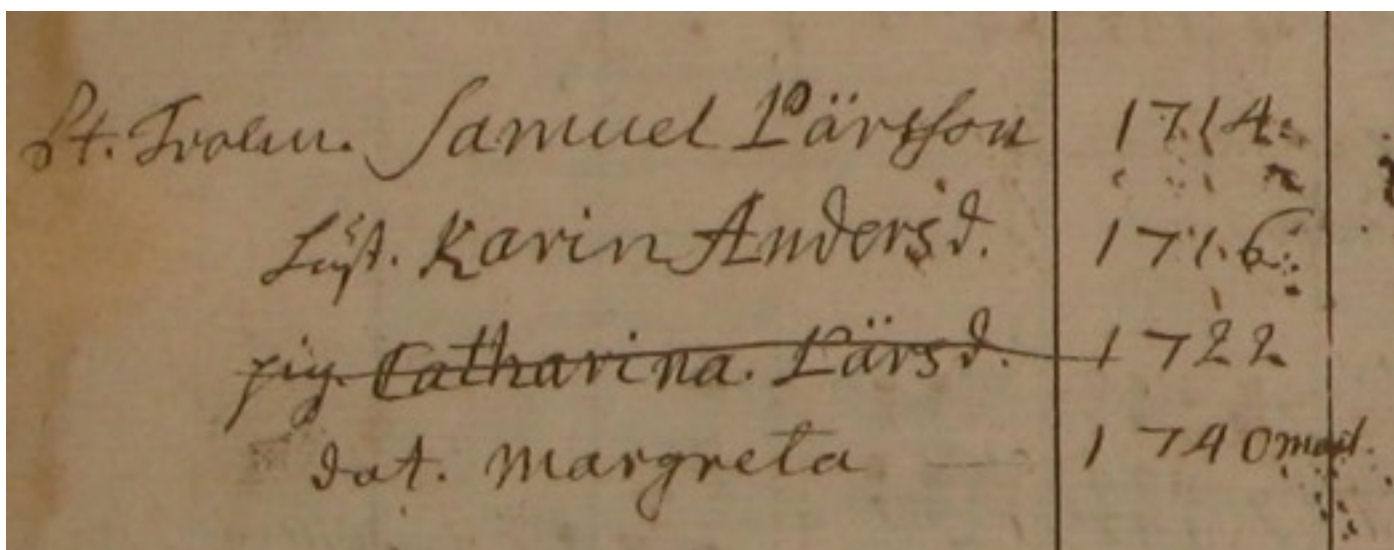 St. Trolm. Samuel Lärsson 1714.
Hust. Karin Andersd. 1716
pig. Catharina. Lärsd. 1722
dot. Margreta 1740